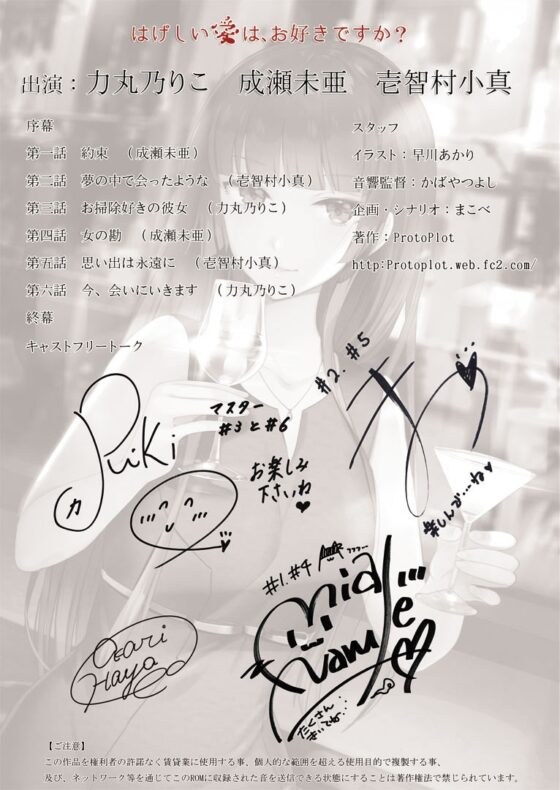 はげしい愛は、お好きですか？
出演：力丸乃りこ　成瀬未亜　壱智村小真
序幕
第一話　約束　（成瀬未亜）
第二話　夢の中で会ったような　（壱智村小真）
第三話　お掃除好きの彼女　（力丸乃りこ）
第四話　女の勘　（成瀬未亜）
第五話　思い出は永遠に　（壱智村小真）
第六話　今、会いにいきます　（力丸乃りこ）
終幕
キャストフリートーク
スタッフ
イラスト：早川あかり
音響監督：かばやつよし
企画・シナリオ：まこべ
著作：ProtoPlot
http:Protoplot.web.fc2.com/
#2. #5
マスター
#3と#6
力
お楽しみ
下さいね
楽しんが…ね
#1.#4
mia
たくさん
【ご注意】
この作品を権利者の許諾なく賃貸業に使用する事、個人的な範囲を超える使用目的で複製する事、
及び、ネットワーク等を通じてこのROMに収録された音を送信できる状態にすることは著作権法で禁じられています。